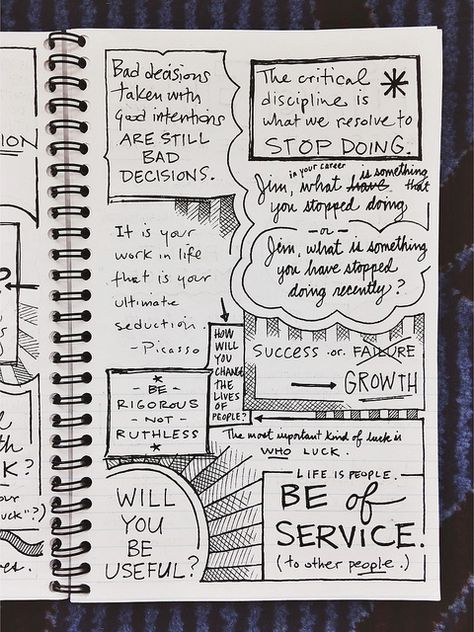 ION
?
S
l
th
K?
our
uck"?)
es.
Bad decisions
taken with
good intentions
ARE STILL
BAD
DECISIONS.
It is your
work in life
that is your
ultimate
seduction.
- Picasso
- BE -
RIGOROUS
- NOT -
RUTHLESS
*
WILL
YOU
BE
USEFUL?
The critical *
discipline is
what we resolve to
STOP DOING.
in your career
Jim, what have is something that
you stopped doing
- or -
Jim, what is something
you have stopped
doing recently?
HOW
WILL
YOU
CHANGE
THE
LIVES
OF
PEOPLE?
SUCCESS or FAILURE
GROWTH
The most important kind of luck is
WHO LUCK.
LIFE IS PEOPLE.
BE of
SERVICE.
(to other people.)